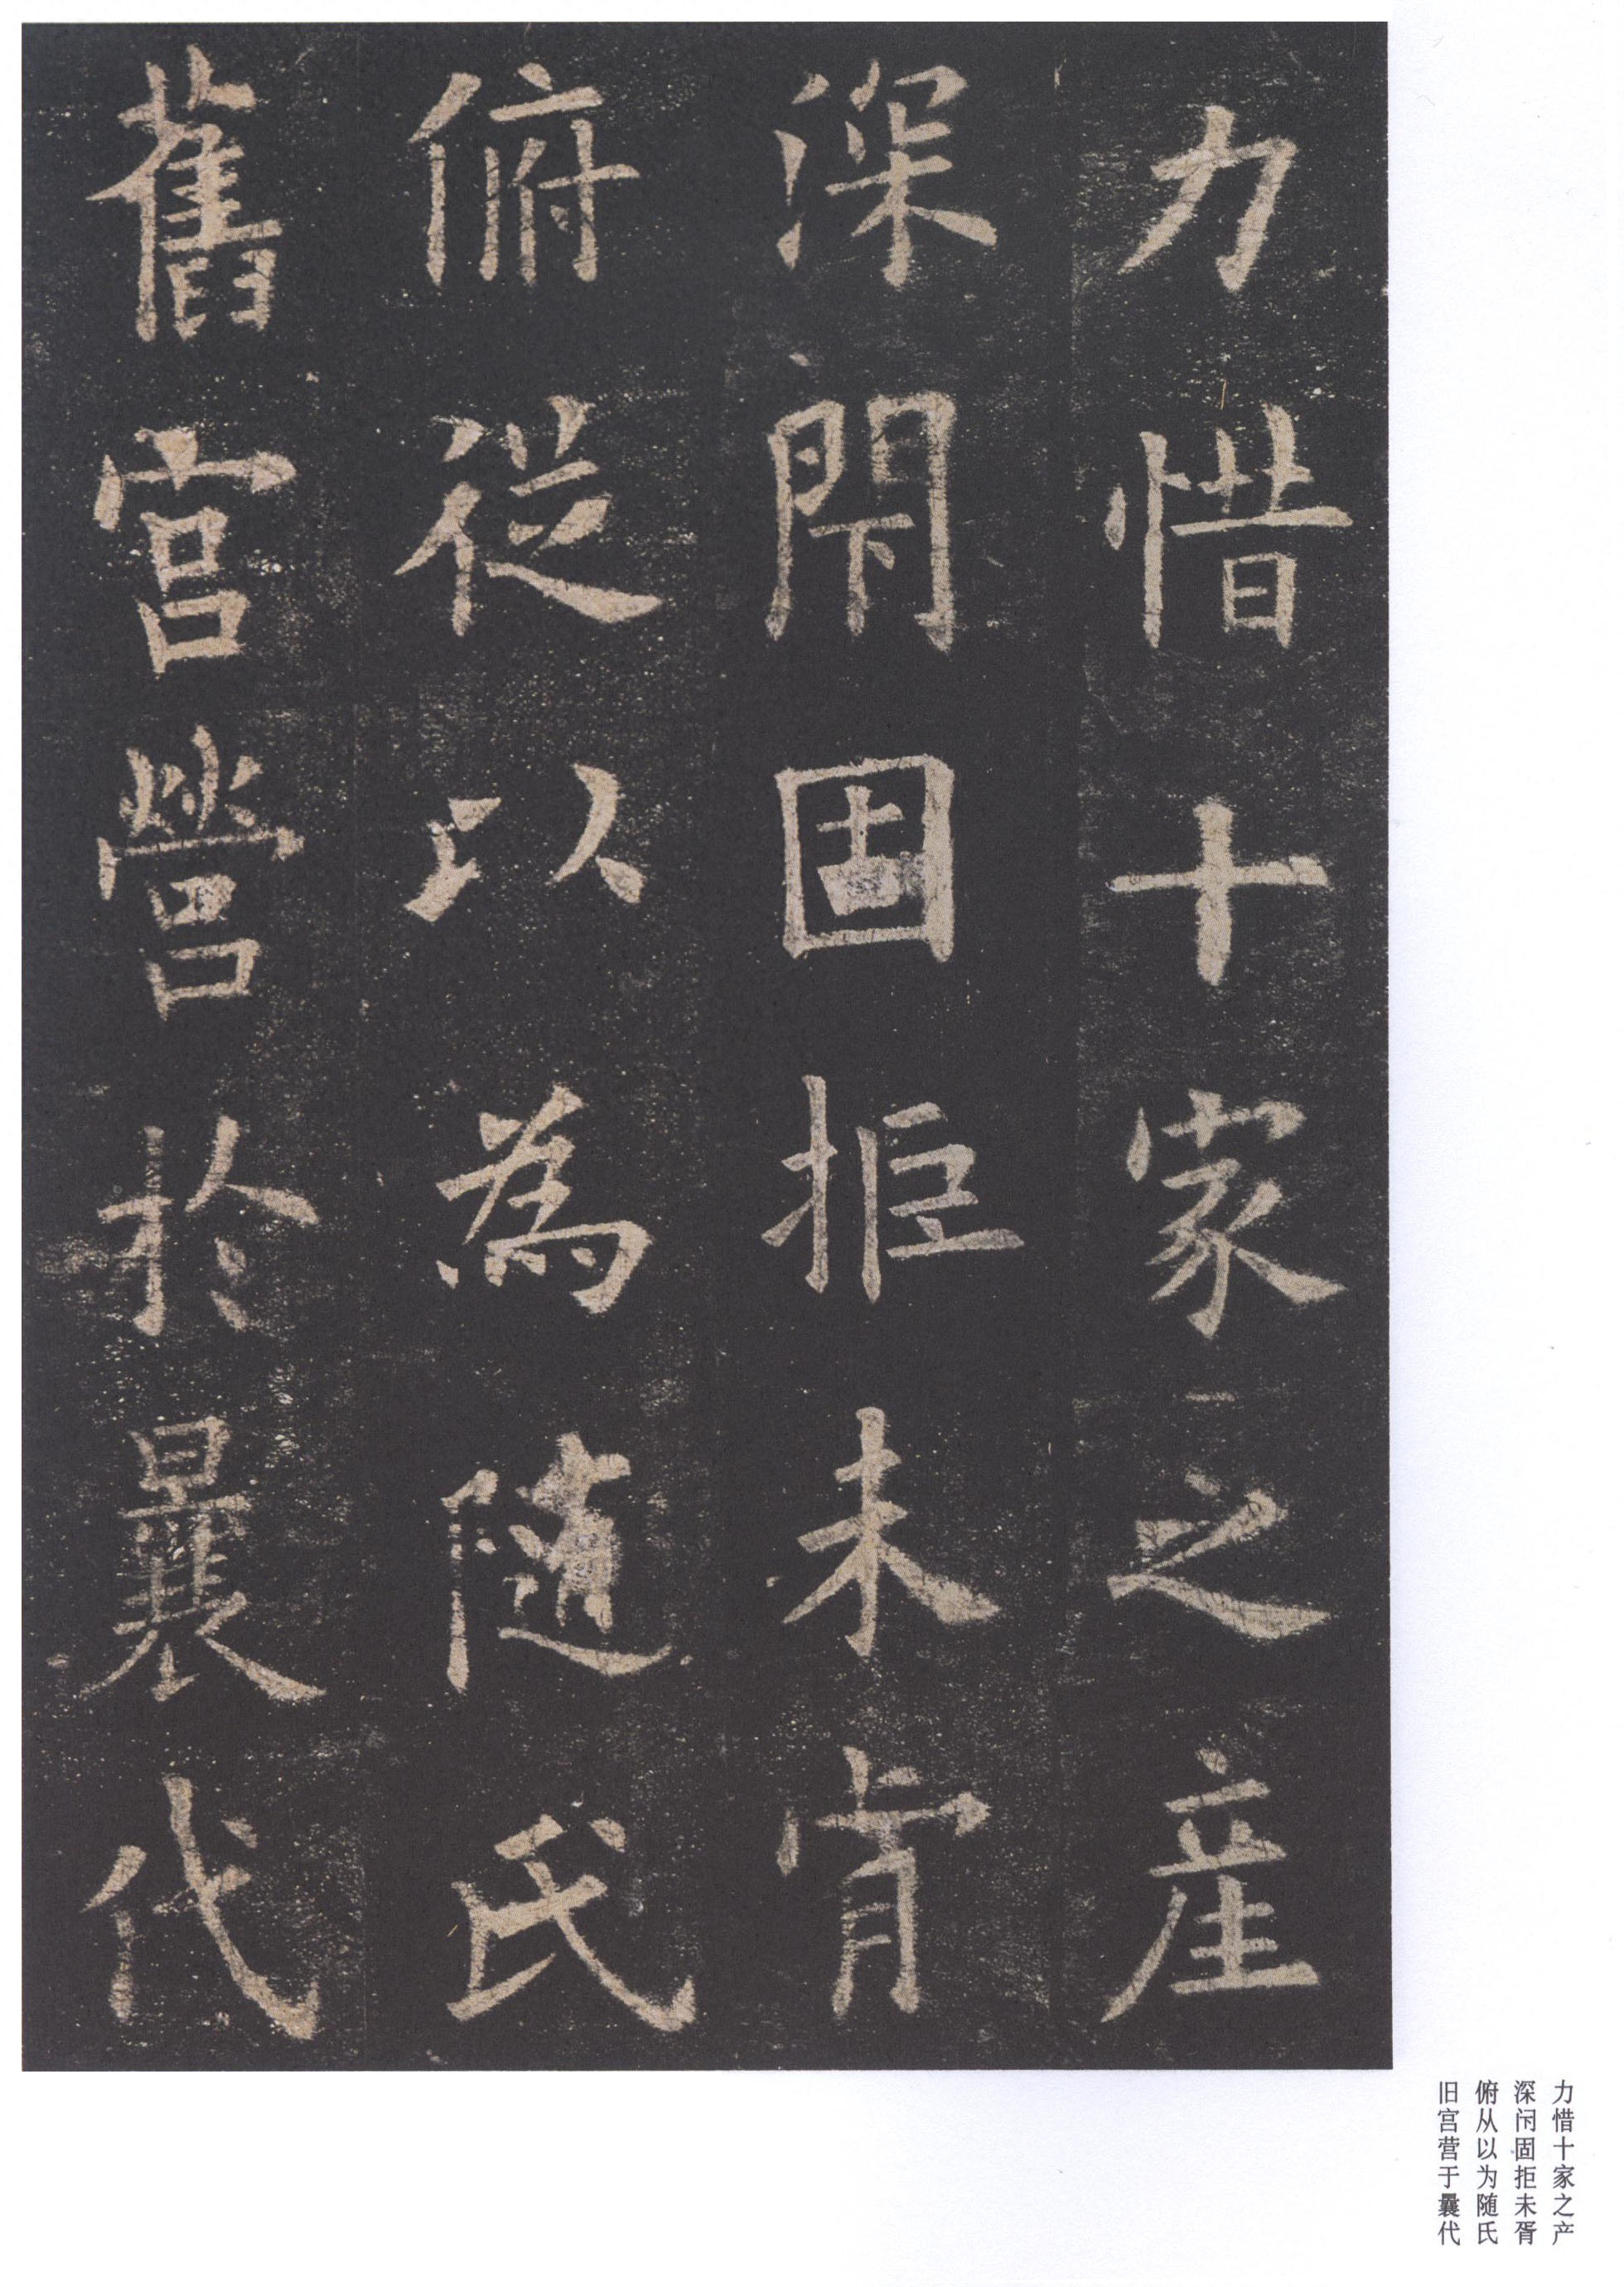 力惜十家之産
深閇固拒未肯
俯從以為隨氏
舊宮營於曩代
力惜十家之产
深固拒未胥
俯从以为随氏
旧宫营于曩代